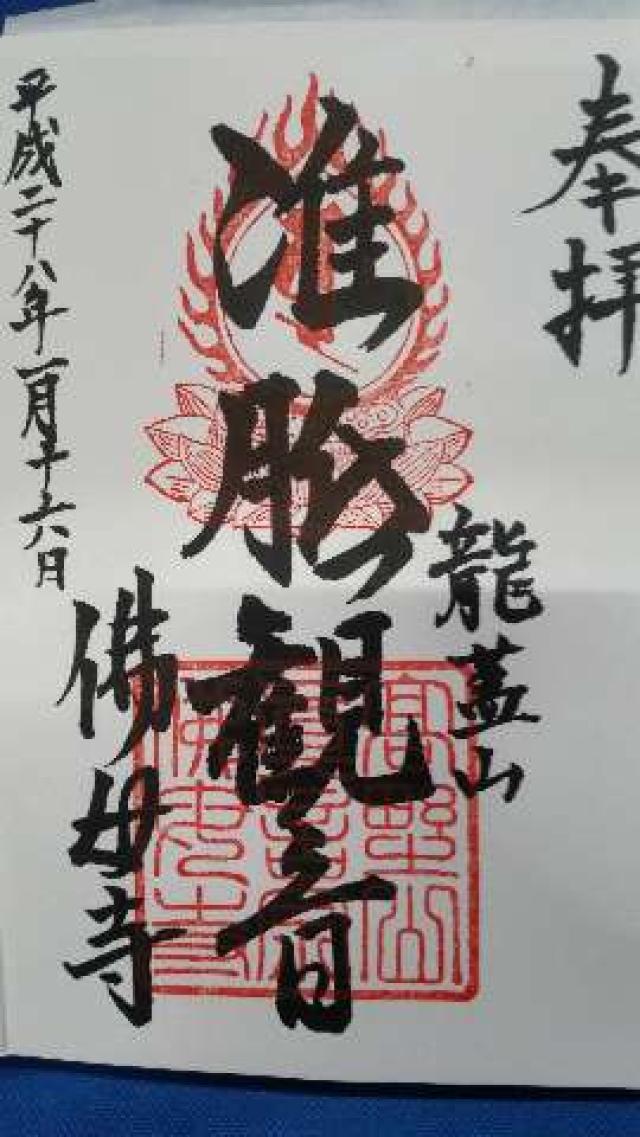 奉拝
龍蓋山
准胝観音
佛母寺
平成二十八年一月十六日
高野山
真言宗
佛母寺